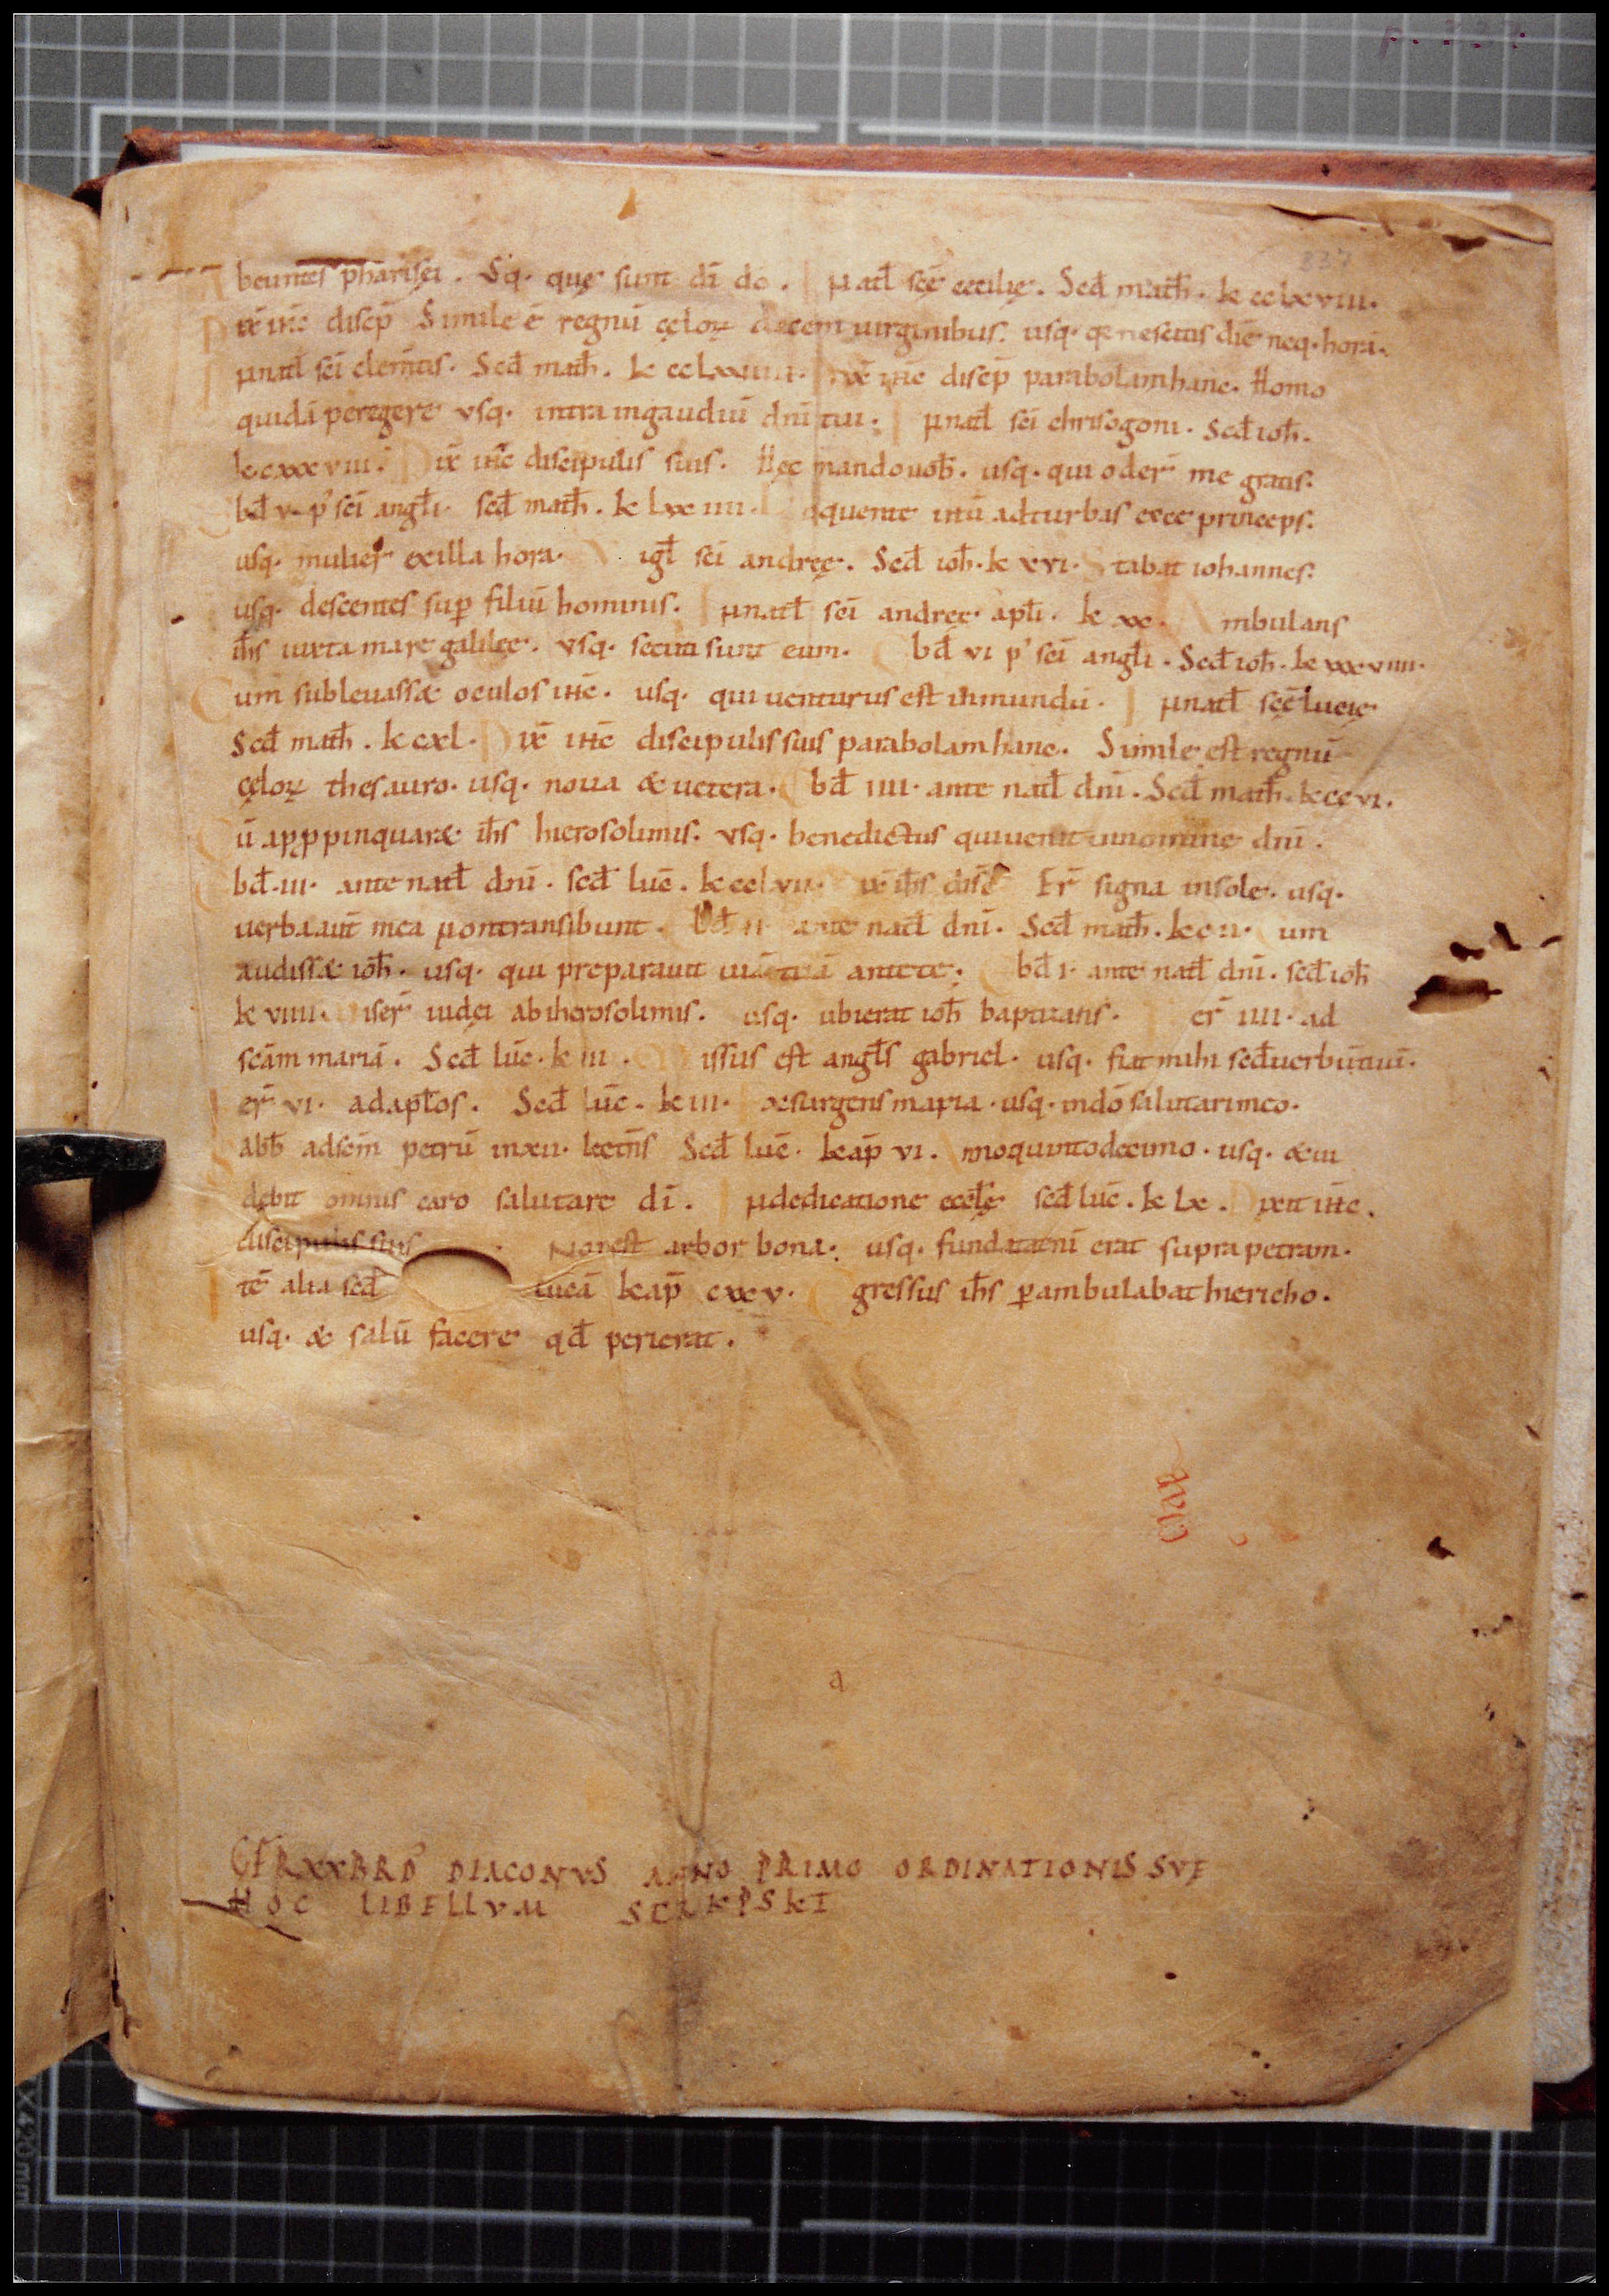 p. 337
337
beuntes pharisęi. Vsq. quę sunt dī dō. I N natł scē cecilię. Scđ math̄. k cclxviii.
Dix̄ ih̄c discip̄ Simile ē regnū cęloꝝ decem uirginibus. usq. q nescitis diē neq. horā.
I N natł scī clem̄tis. Scđ math̄. k cclxxiiii. Dix̄ ih̄c discip̄ parabolam hanc. Homo
quidā peregere vsq. intra in gaudiū dn̄i tui. I N natł scī chrisogoni. Scđ ioh̄.
k cxxxviiii. Dix̄ ih̄c discipulis suis. Hęc mando uob̄. usq. qui oder̄ me gratis.
Ebđ v p' scī angłi. scđ math̄. k lxxiiii. Loquente ih̄u ad turbas ecce princeps.
usq. mulier ex illa hora. Vigł scī andreę. Scđ ioh̄. k xvi. Stabat iohannes.
usq. descentes sup̄ filiū hominis. I N natł scī andreę apłi. k xx. Ambulans
ih̄s iuxta mare galileę. vsq. secuti sunt eum. Ebđ vi p' scī angłi. Scđ ioh̄. k xxxviiii.
Cum subleuasset oculos ih̄c. usq. qui uenturus est in mundū. I N natł scē lucię
Scđ math̄. k cxl. Dix̄ ih̄c discipulis suis parabolam hanc. Simile est regnū
cęloꝝ thesauro. usq. noua & uetera. Ebđ iiii. ante natł dn̄i. Scđ math̄. k ccvi.
Cū appropinquar& ih̄s hierosolimis. vsq. benedictus qui uenit in nomine dn̄i.
Ebđ. iii. ante natł dn̄i. scđ luc̄. k cclvii. Dix̄ ih̄s disc̄ Er̄ signa in sole. usq.
uerba aut̄ mea non transibunt. Ebđ ii ante natł dn̄i. Scđ math̄. k cii. Cum
audiss& ioh̄. usq. qui preparauit uiā tuā ante te. Ebđ i. ante natł dn̄i. scđ ioh̄
k viiii. Miser̄ iudęi ab iherosolimis. usq. ubi erat ioh̄ baptizans. Fer̄ iiii. ad
scām mariā. Scđ luc̄. k iii. Missus est angłs gabriel. usq. fiat mihi scđ uerbū tuū.
Fer̄ vi. ad apłos. Scđ luc̄. k iii. Exsurgens maria. usq. in dō salutari meo.
Sabb̄ ad scm̄ petrū in xii. lectn̄s Scđ luc̄. kap̄ vi. Anno quintodecimo. usq. & ui
debit omnis caro salutare dī. I N dedicatione ecclę scđ luc̄. k lx. Dixit ih̄c.
discipulis suis. Non est arbor bona. usq. fundata eni erat supra petram.
Itē alia scđ lucā kap̄ ccxxv. Egressus ih̄s perambulabat hiericho.
usq. & saluū facere qđ perierat.
a
GFRXXBRD' DIACONVS ANNO PRIMO ORDINATIONIS SVE
HOC LIBELLVM SCRKPSKT